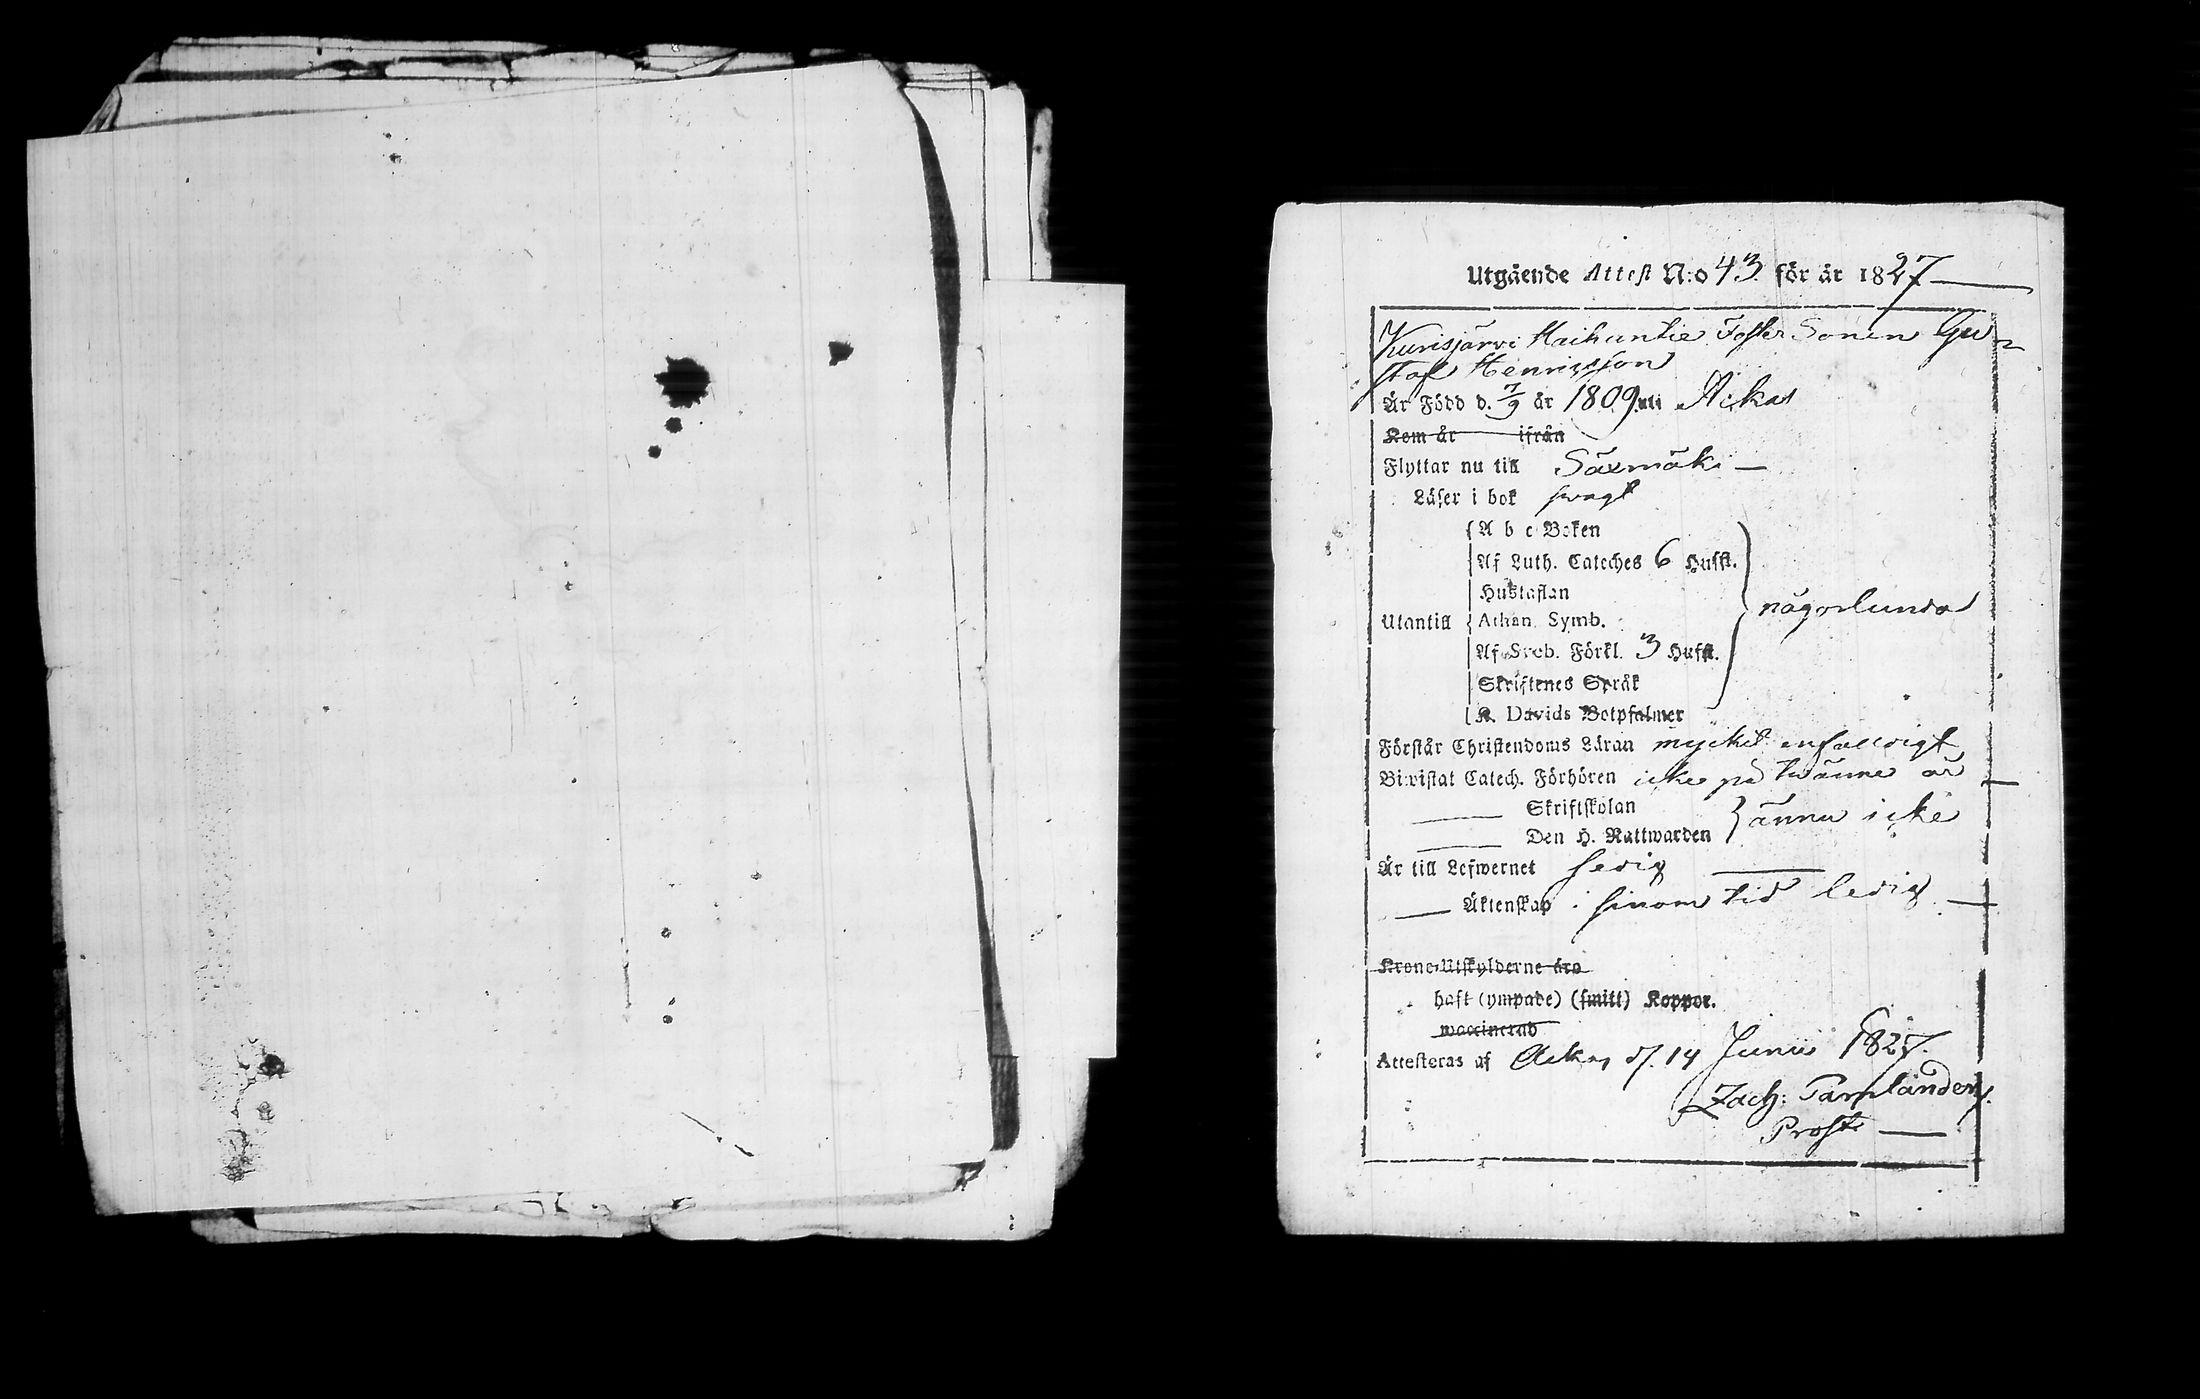 Utgående Attest N:o 43 för år 1827
Kurisjärvi Maihuntie Foster Sonen Gu-
staf Henricsson
Är Född d. 7/9 år 1809 uti Ackas
Kom år ifrån
Flyttar nu till Säxmäki
Läser i bok swagt
A b c Boken
Af Luth. Cateches 6 Hufst.
Hustaflan
någorlunda
Utantill Athan. Symb.
Af Sveb. Förkl. 3 Hufst.
Skriftenes Språk
K. Davids Botpsalmer
Förstår Christendoms Läran mycket enfalldigt
Biwistat Catech. Förhören icke på twänne år
Skriftskolan
ännu icke
Den H. Nattwarden
Är till Lefwernet sedig
Äktenskap i sinom tid ledig
Krono-Utskylderne äro
haft (ympade) (smitt) Koppor.
waccinerad
Attesteras af Ackas d. 14 Junii 1827.
Zach:
Prost